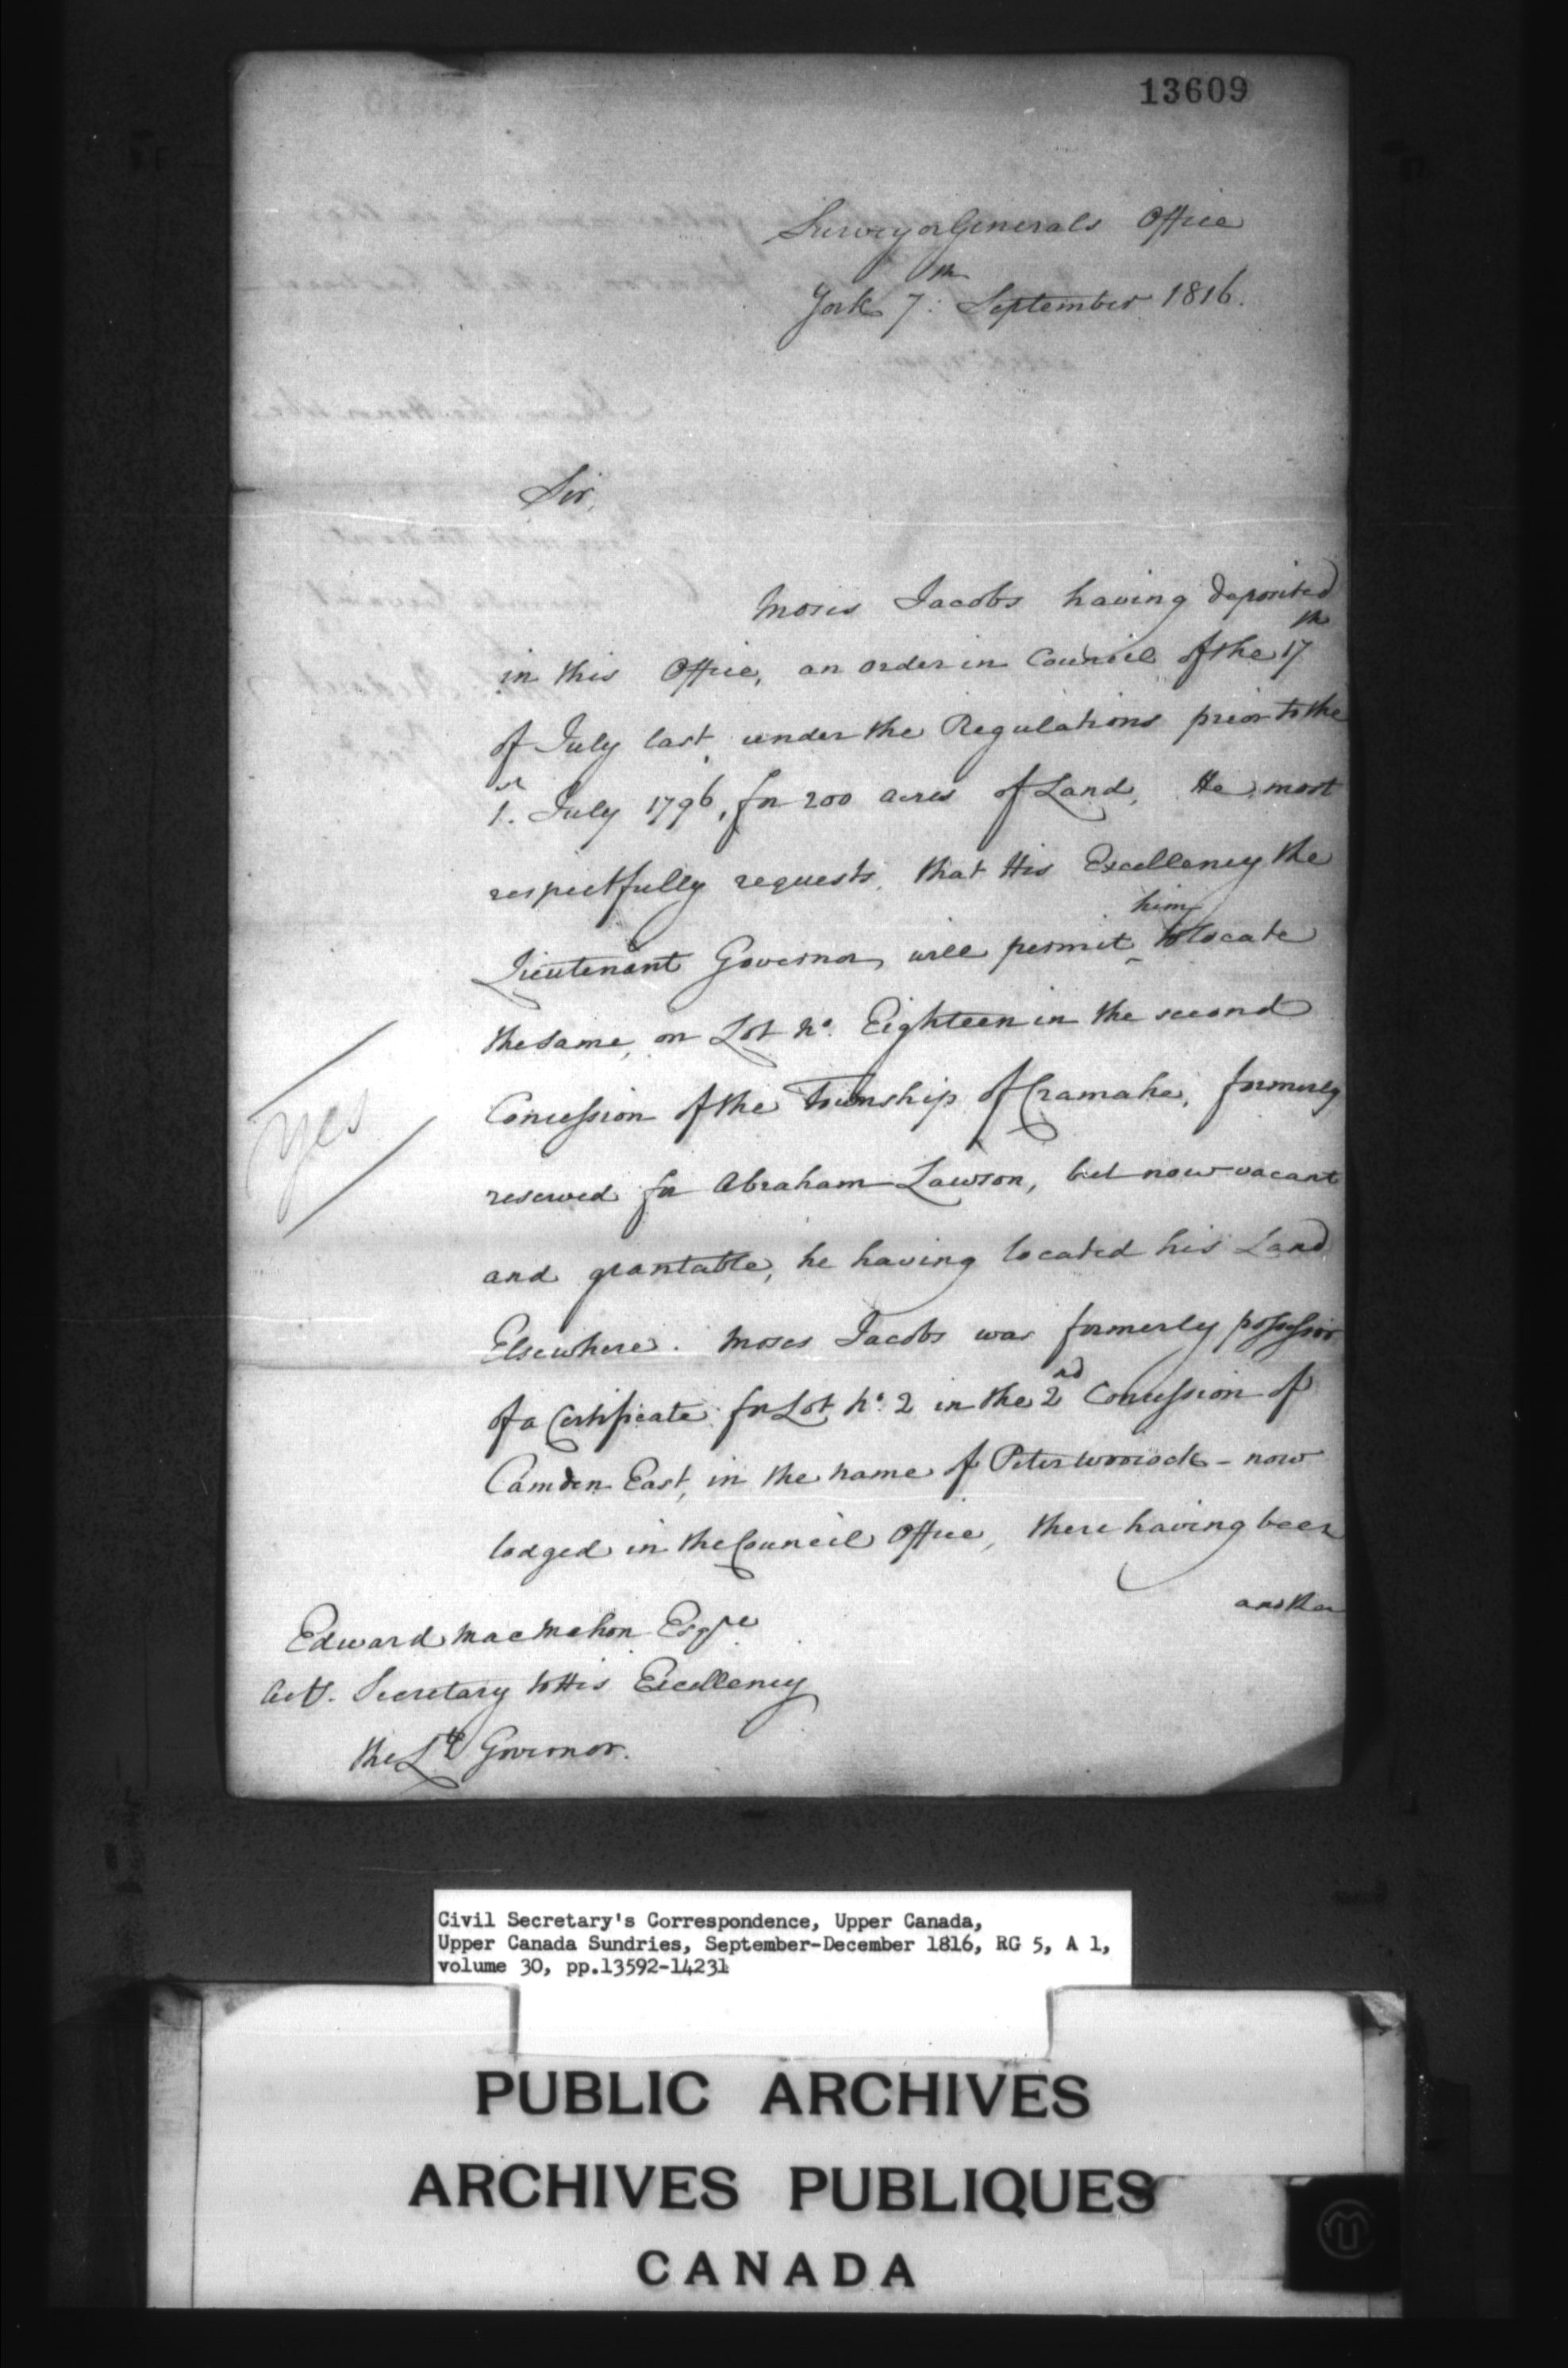 13609
Surveyor Generals Office
York 7th September 1816.
Sir,
Moses Jacobs having deposited
in this Office, an order in Council of the 17th
of July last, under the Regulations prior to the
1st July 1796, for 200 acres of Land, He most
respectfully requests, that His Excellency the
Lieutenant Governor, will permit him to locate
the same, on Lot No. Eighteen in the second
Concession of the Township of Cramahe, formerly
reserved for Abraham Lawson, but now vacant
and grantable, he having located his Land
Elsewhere. Moses Jacobs was formerly possessor
of a Certificate for Lot No. 2 in the 2nd Concession of
Camden East, in the name of Peter - now
lodged in the Council Office, there having been
another
yes
Edward MacMahon Esqre
Actg. Secretary to His Excellency
the Lt Governor.
Civil Secretary's Correspondence, Upper Canada,
Upper Canada Sundries, September-December 1816, RG 5, A 1,
volume 30, pp.13592-14231
PUBLIC ARCHIVES
ARCHIVES PUBLIQUES
CANADA